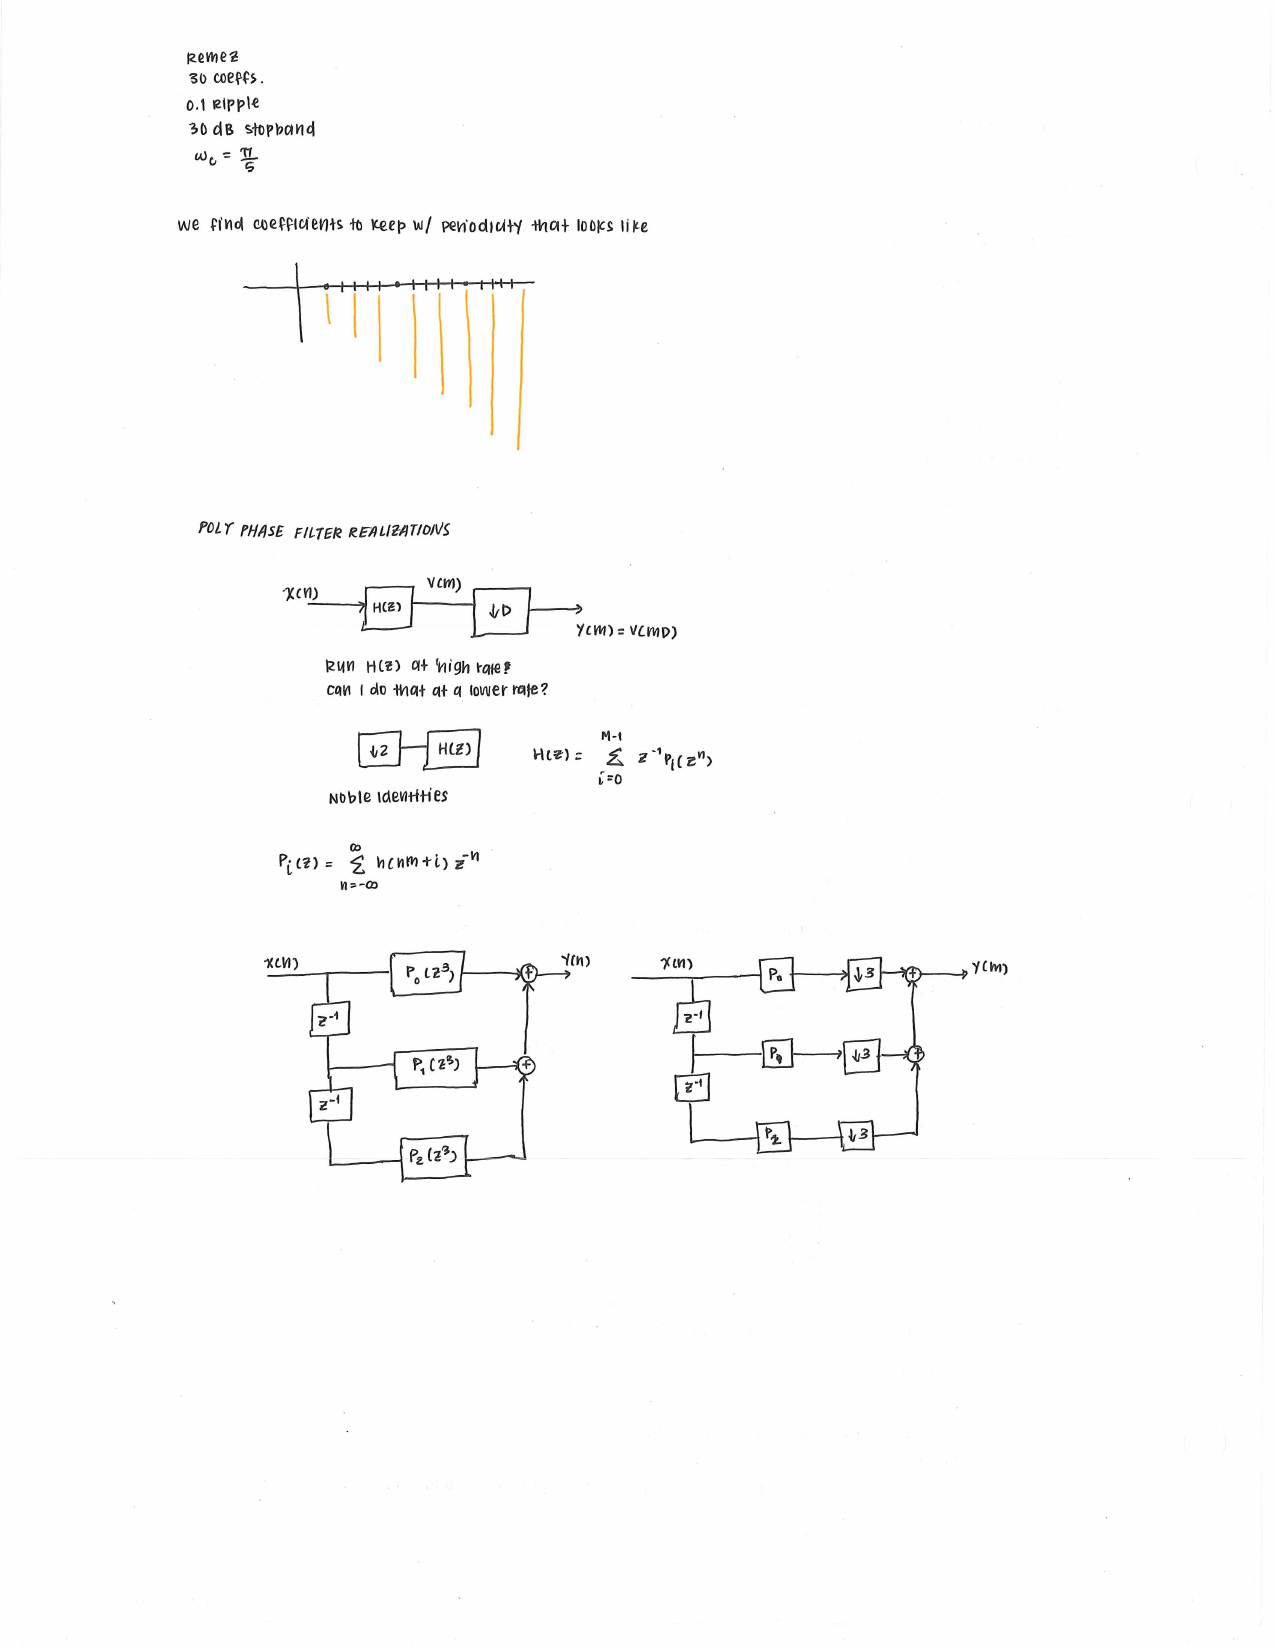 Remez
30 coeffs.
0.1 Ripple
30 dB stopband
ω_c = π/5
We find coefficients to keep w/ periodicity that looks like
POLY PHASE FILTER REALIZATIONS
x(n) H(z) V(m) ↓D
Y(m) = V(mD)
Run H(z) at high rate!
can I do that at a lower rate?
↓2 H(z) H(z) = M-1 Σ i=0 z^-1 P_i(z^n)
Noble Identities
P_i(z) = ∞ Σ n=-∞ h(nm+i) z^-n
x(n) P_0(z^3) + Y(n)
z^-1
P_1(z^3) +
z^-1
P_2(z^3)
x(n) P_0 ↓3 + Y(m)
z^-1
↓3 +
z^-1
P_2 ↓3